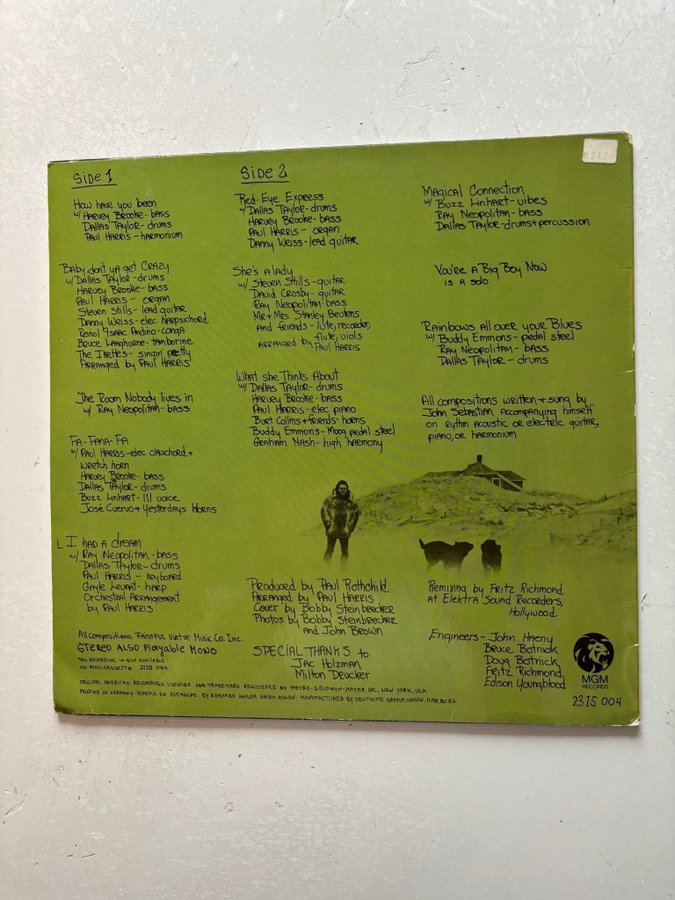 Side 1
How have you been
w/ Harvey Brooke - bass
Dallas Taylor - drums
Paul Harris - harmonium
Baby don't ya get Crazy
w/ Dallas Taylor - drums
Harvey Brooke - bass
Paul Harris - organ
Steven Stills - lead guitar
Danny Weiss - elec. harpsichord
Reinol Isaac Andino - conga
Bruce Langhorne - tamborine
The Ikettes - singin' pretty
Arranged by Paul Harris
The Room Nobody lives in
w/ Ray Neopolitan - bass
Fa-Fana-Fa
w/ Paul Harris - elec clavichord +
wretch horn
Harvey Brooke - bass
Dallas Taylor - drums
Buzz Linhart - lil voice
José Cuervo + Yesterdays Horns
I had a dream
w/ Ray Neopolitan - bass
Dallas Taylor - drums
Paul Harris - keyboard
Gayle Levant - harp
Orchestral Arrangement
by Paul Harris
Side 2
Red-Eye Express
w/ Dallas Taylor - drums
Harvey Brooke - bass
Paul Harris - organ
Danny Weiss - lead guitar
She's a lady
w/ Steven Stills - guitar
David Crosby - guitar
Ray Neopolitan - bass
Mr + Mrs Stanley Beutens
and friends - lute, recorder,
flute, viols
arranged by Paul Harris
What she Thinks About
w/ Dallas Taylor - drums
Harvey Brooke - bass
Paul Harris - elec piano
Burt Collins + friends - horns
Buddy Emmons - Moog pedal steel
Graham Nash - high harmony
Magical Connection
w/ Buzz Linhart - vibes
Ray Neopolitan - bass
Dallas Taylor - drums + percussion
You're a Big Boy Now
is a solo
Rainbows all over your Blues
w/ Buddy Emmons - pedal steel
Ray Neopolitan - bass
Dallas Taylor - drums
All compositions written + sung by
John Sebastian accompanying himself
on rythm acoustic or electric guitar,
piano, or harmonium
Produced by Paul Rothchild
Arranged by Paul Harris
Cover by Bobby Steinbrecker
Photos by Bobby Steinbrecker
and John Brown
SPECIAL THANKS to
Jac Holzman
Milton Drucker
Remixing by Fritz Richmond
at Elektra Sound Recorders,
Hollywood
Engineers - John Haeny
Bruce Botnick
Doug Botnick
Fritz Richmond
Edison Youngblood
All compositions Faithful Virtue Music Co. Inc.
STEREO ALSO Playable MONO
THIS RECORDING IS ALSO AVAILABLE
ON MUSICASSETTE 3110 004
ORIGINAL AMERICAN RECORDINGS LICENSED AND TRADEMARK REGISTERED BY METRO-GOLDWYN-MAYER INC., NEW YORK, USA
PRINTED IN GERMANY IMPRIMÉ EN ALLEMAGNE BY GERHARD KAISER GMBH, ESSEN · MANUFACTURED BY DEUTSCHE GRAMMOPHON, HAMBURG
MGM
RECORDS
2315 004